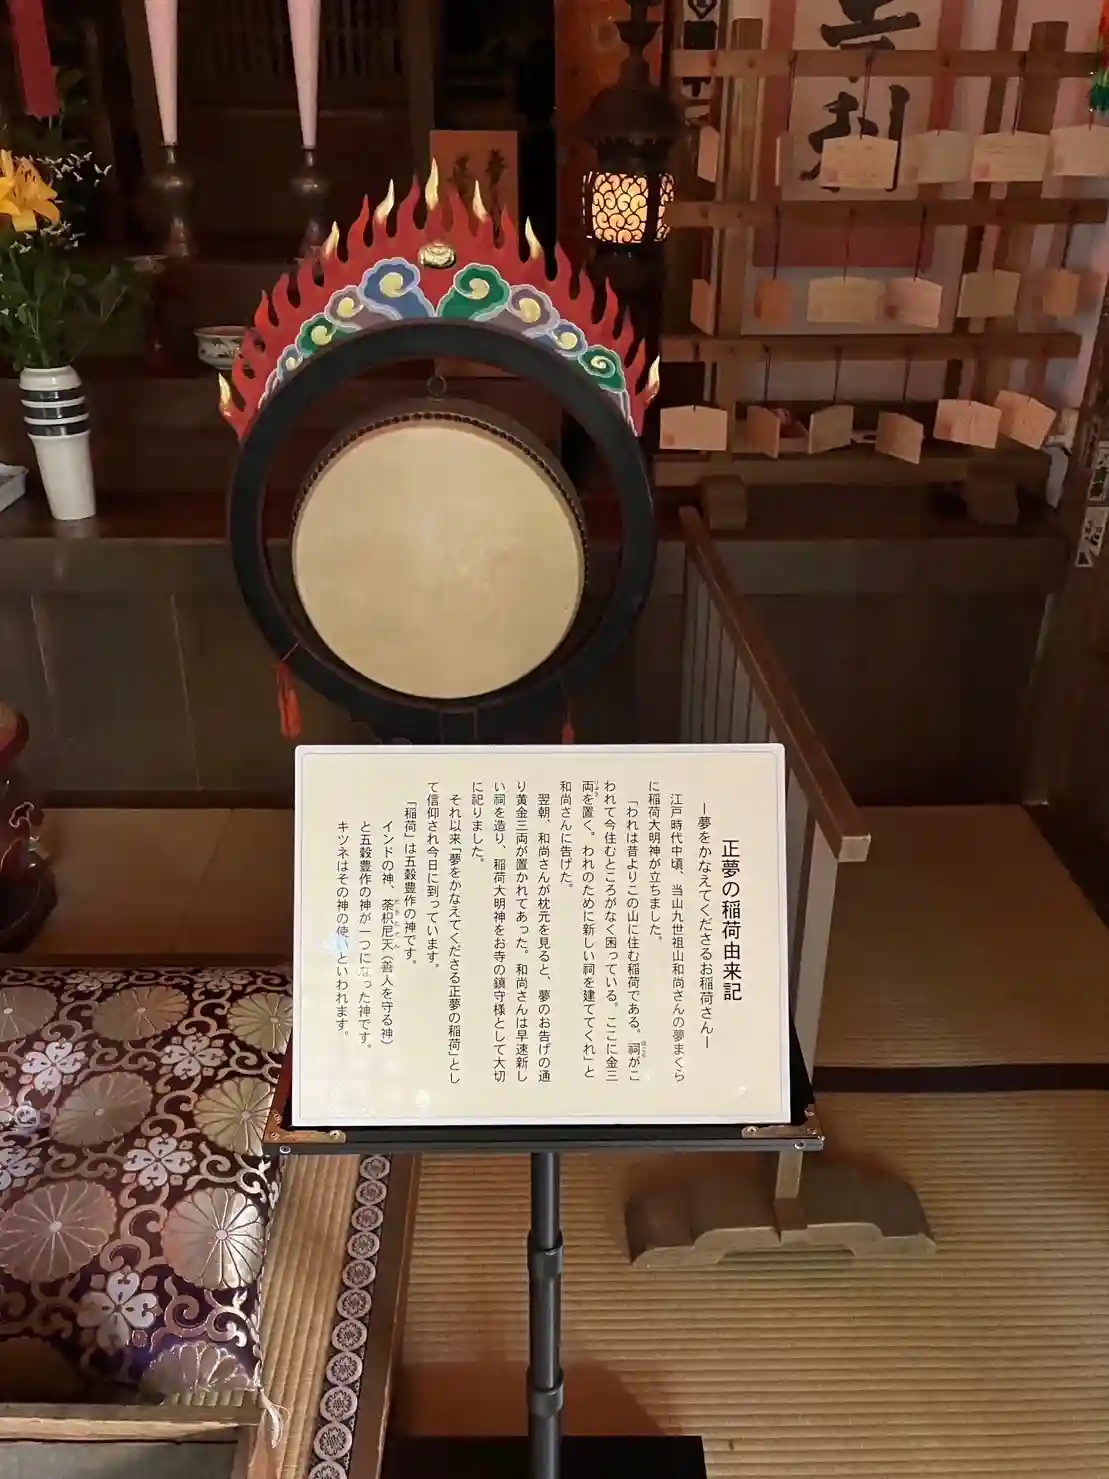 正夢の稲荷由来記
―夢をかなえてくださるお稲荷さん―
江戸時代中頃、当山九世祖山和尚さんの夢まくら
に稲荷大明神が立ちました。
「われは昔よりこの山に住む稲荷である。祠がこ
われて今住むところがなく困っている。ここに金三
両を置く。われのために新しい祠を建ててくれ」と
和尚さんに告げた。
翌朝、和尚さんが枕元を見ると、夢のお告げの通
り黄金三両が置かれてあった。和尚さんは早速新し
い祠を造り、稲荷大明神をお寺の鎮守様として大切
に祀りました。
それ以来「夢をかなえてくださる正夢の稲荷」とし
て信仰され今日に到っています。
「稲荷」は五穀豊作の神です。
インドの神、荼枳尼天（善人を守る神）
と五穀豊作の神が一つになった神です。
キツネはその神の使いといわれます。